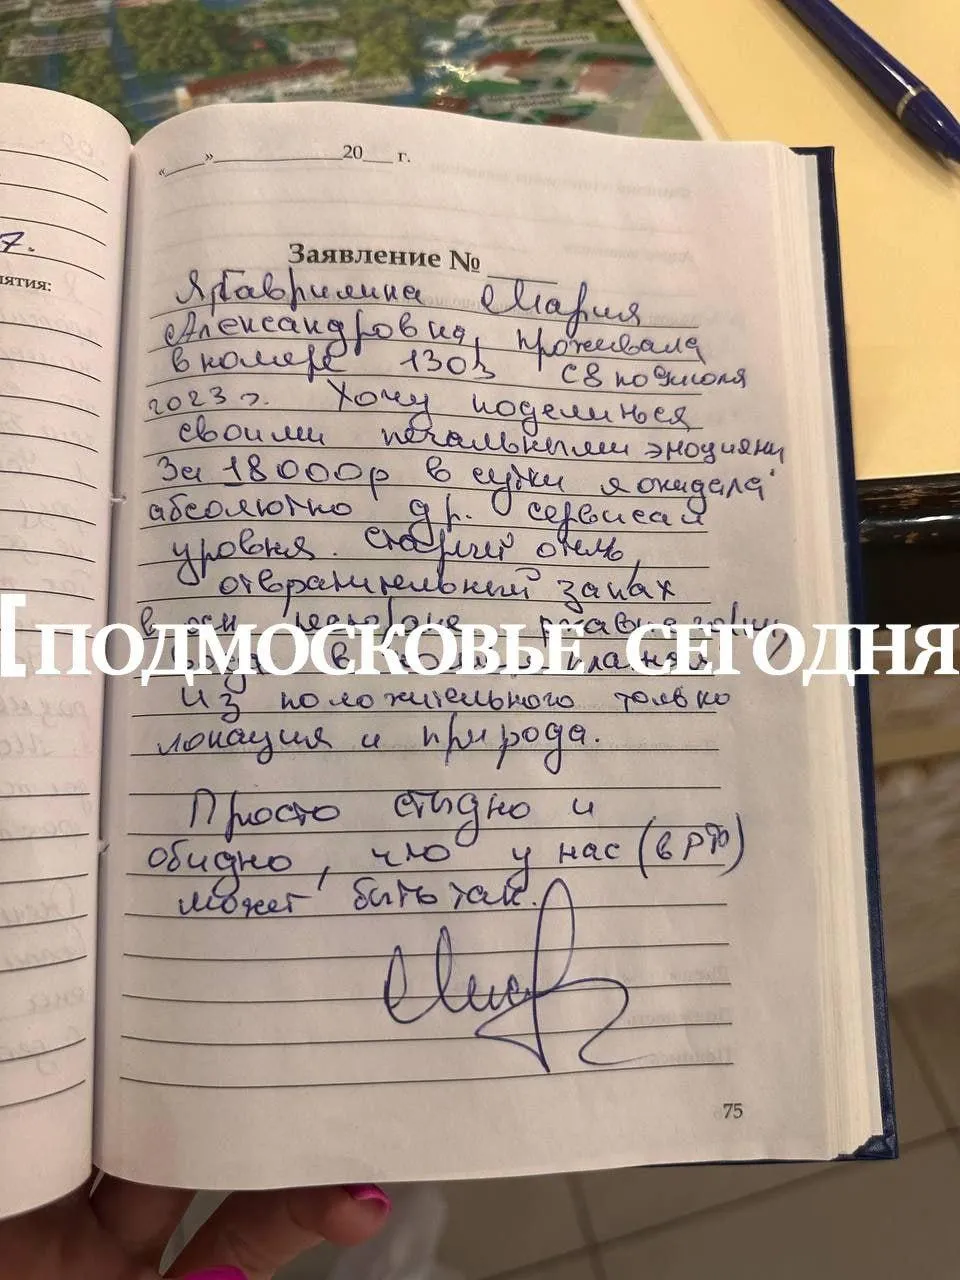 7.
ятия:
«____»____________20___ г.
Заявление № ______
Я, Гаврилина Мария
Александровна, проживала
в номере 1303 с 8 по 9 июля
2023 г. Хочу поделиться
своими печальными эмоциями
За 18 000р в сутки я ожидала
абсолютно др. сервис и
уровня. Старый отель,
отвратительный запах
в
[ПОДМОСКОВЬЕ СЕГОДНЯ
вода в
Из положительного только
локация и природа.
Просто стыдно и
обидно, что у нас (в РФ)
может быть так.
75